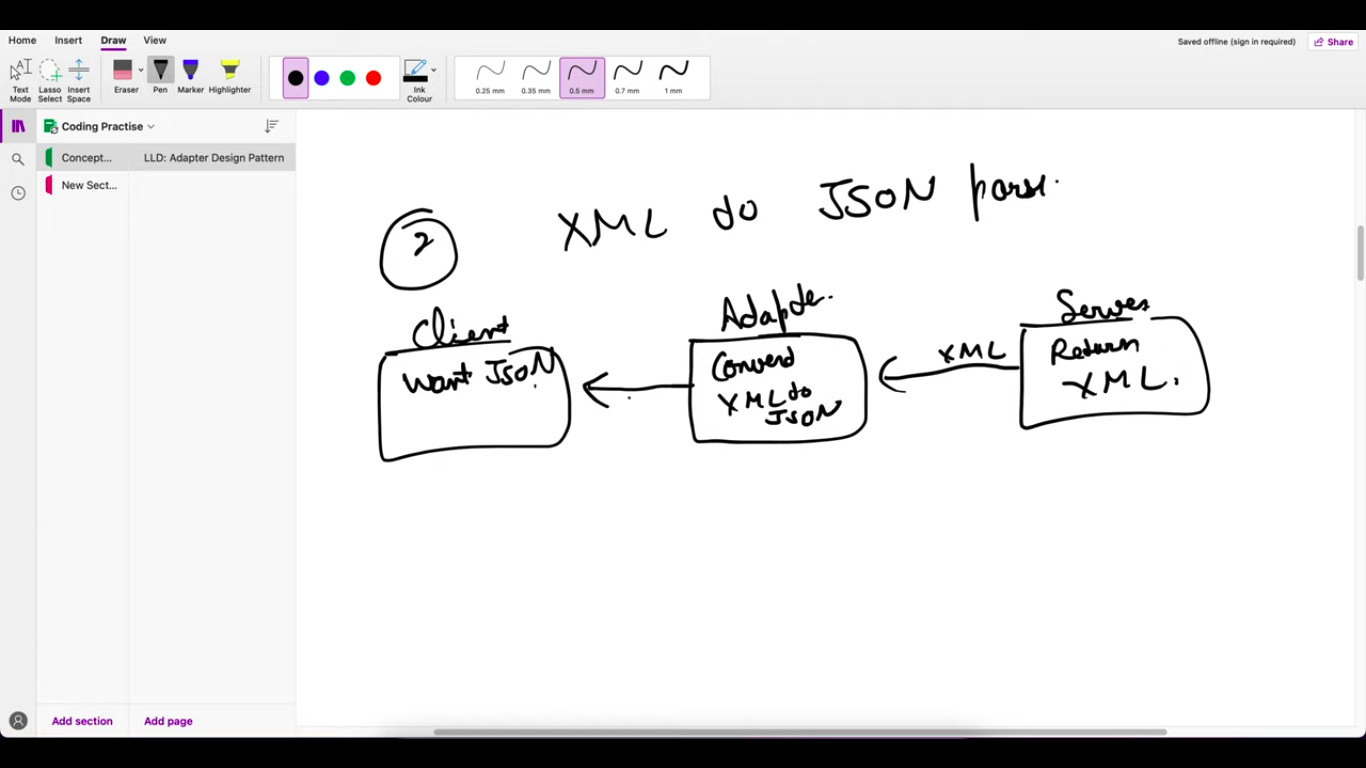 Home Insert Draw View
Saved offline (sign in required) Share
Text Mode
Lasso Select
Insert Space
Eraser
Pen
Marker
Highlighter
Ink Colour
0.25 mm
0.35 mm
0.5 mm
0.7 mm
1 mm
Coding Practise
Concept... LLD: Adapter Design Pattern
New Sect...
2 XML to JSON parse.
Client
Want JSON
Adapter
Convert
XML to
JSON
XML
Server
Return
XML.
Add section Add page